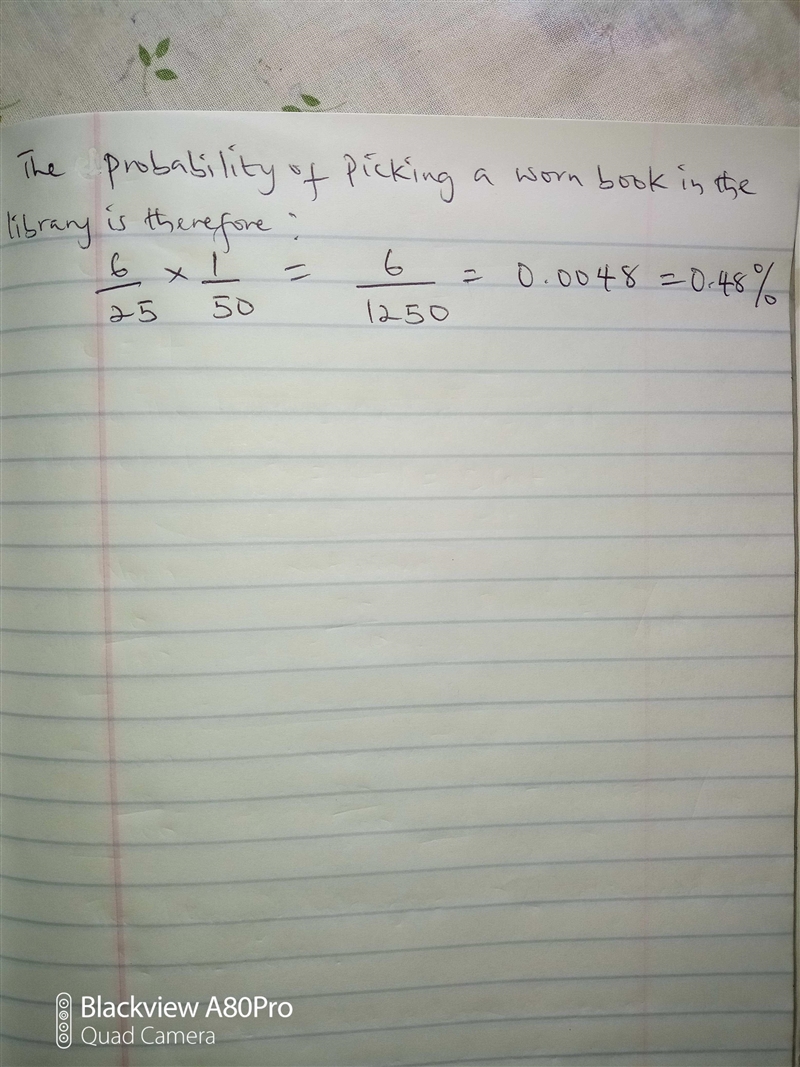 The probability of picking a worn book in the
library is therefore:
6/25 × 1/50 = 6/1250 = 0.0048 = 0.48%
Blackview A80Pro
Quad Camera